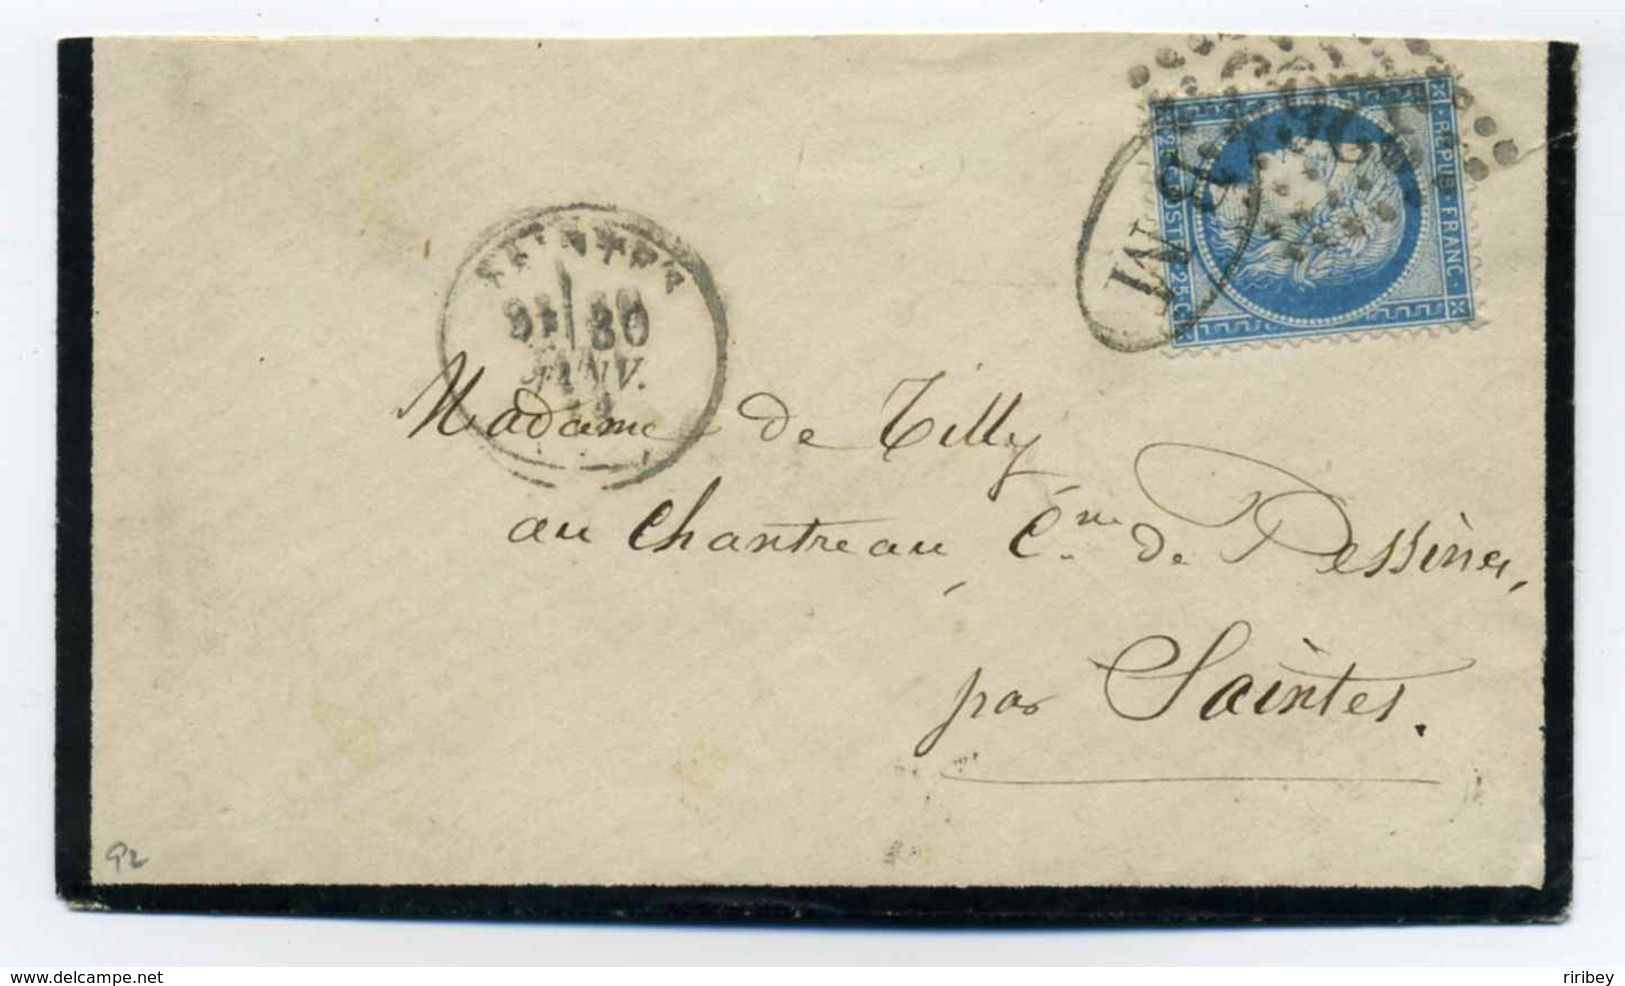 REPUB · FRANC ·
25 C POSTES 25 C
SAINTES
30
JANV.
BM
Madame de Tilly
au Chantreau, Cne de Pessines,
par Saintes.
www.delcampe.net
riribey